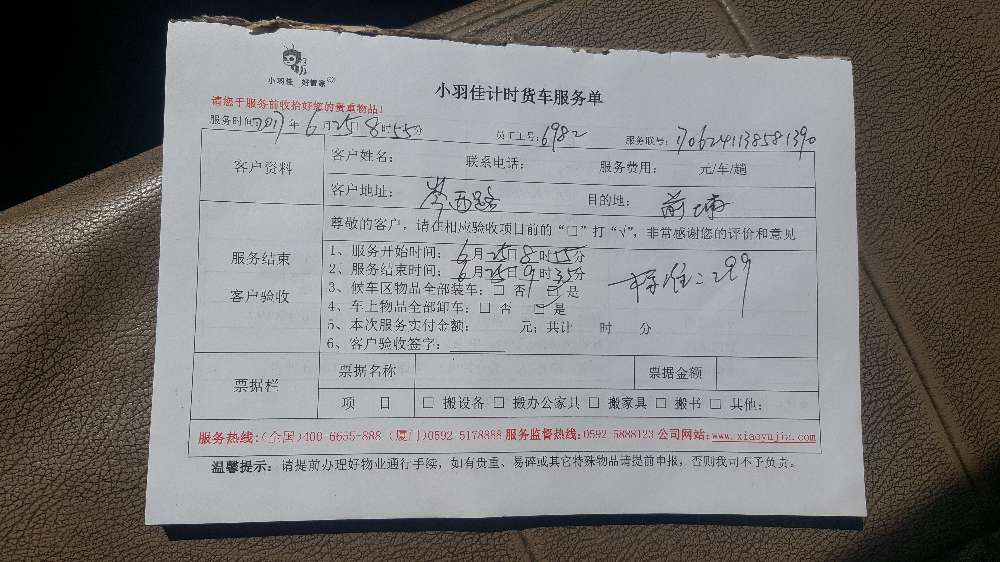 小羽佳 好管家
小羽佳计时货车服务单
请您于服务前收拾好您的贵重物品！
服务时间：2017年6月25日8时55分 员工工号：6982 服务联号：1706241138581390
客户资料
客户姓名： 联系电话： 服务费用： 元/车/趟
客户地址：岑西路 目的地：前埔
服务结束
客户验收
尊敬的客户，请在相应验收项目前的“□”打“√”，非常感谢您的评价和意见
1、服务开始时间：6月25日8时55分
2、服务结束时间：6月25日9时35分
3、候车区物品全部装车：□ 否 □ 是
4、车上物品全部卸车：□ 否 □ 是
5、本次服务实付金额： 元；共计 时 分
6、客户验收签字：
299
票据栏
票据名称 票据金额
项 目 □ 搬设备 □ 搬办公家具 □ 搬家具 □ 搬书 □ 其他：
服务热线：(全国)400-6655-888 (厦门)0592-5178888 服务监督热线：0592-5888123 公司网站：www.xiaoyujia.com
温馨提示：请提前办理好物业通行手续，如有贵重、易碎或其它特殊物品请提前申报，否则我司不予负责。